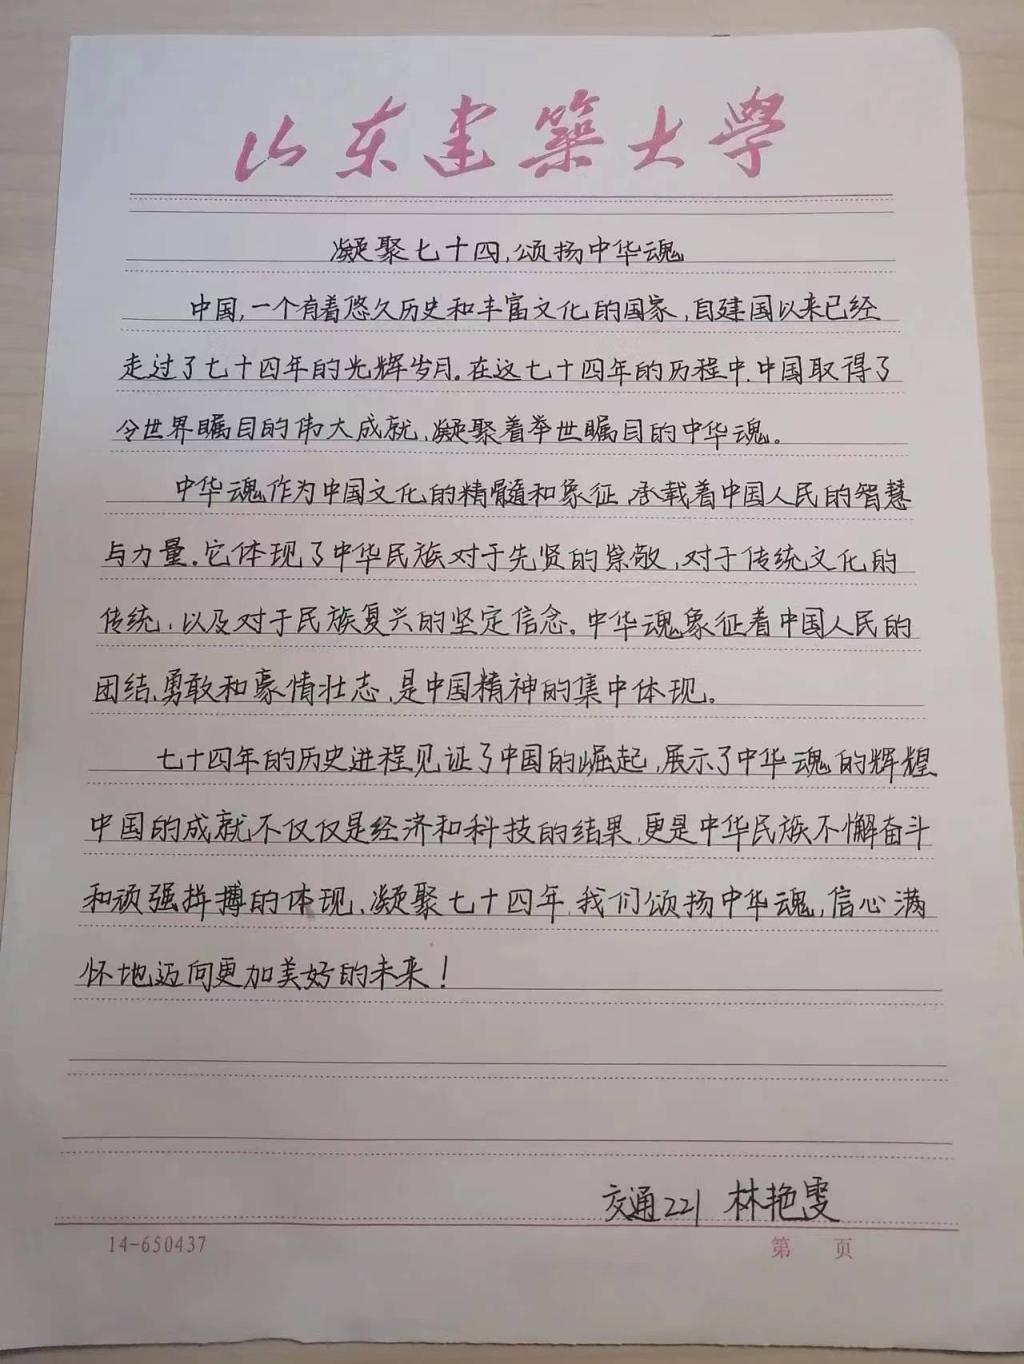 山东建築大學
凝聚七十四,颂扬中华魂
中国,一个有着悠久历史和丰富文化的国家,自建国以来已经
走过了七十四年的光辉岁月。在这七十四年的历程中,中国取得了
令世界瞩目的伟大成就,凝聚着举世瞩目的中华魂。
中华魂作为中国文化的精髓和象征,承载着中国人民的智慧
与力量。它体现了中华民族对于先贤的崇敬,对于传统文化的
传统,以及对于民族复兴的坚定信念。中华魂象征着中国人民的
团结、勇敢和豪情壮志,是中国精神的集中体现。
七十四年的历史进程见证了中国的崛起,展示了中华魂的辉煌
中国的成就不仅仅是经济和科技的结果,更是中华民族不懈奋斗
和顽强拼搏的体现。凝聚七十四年,我们颂扬中华魂,信心满
怀地迈向更加美好的未来!
交通221 林艳雯
14-650437 第 页